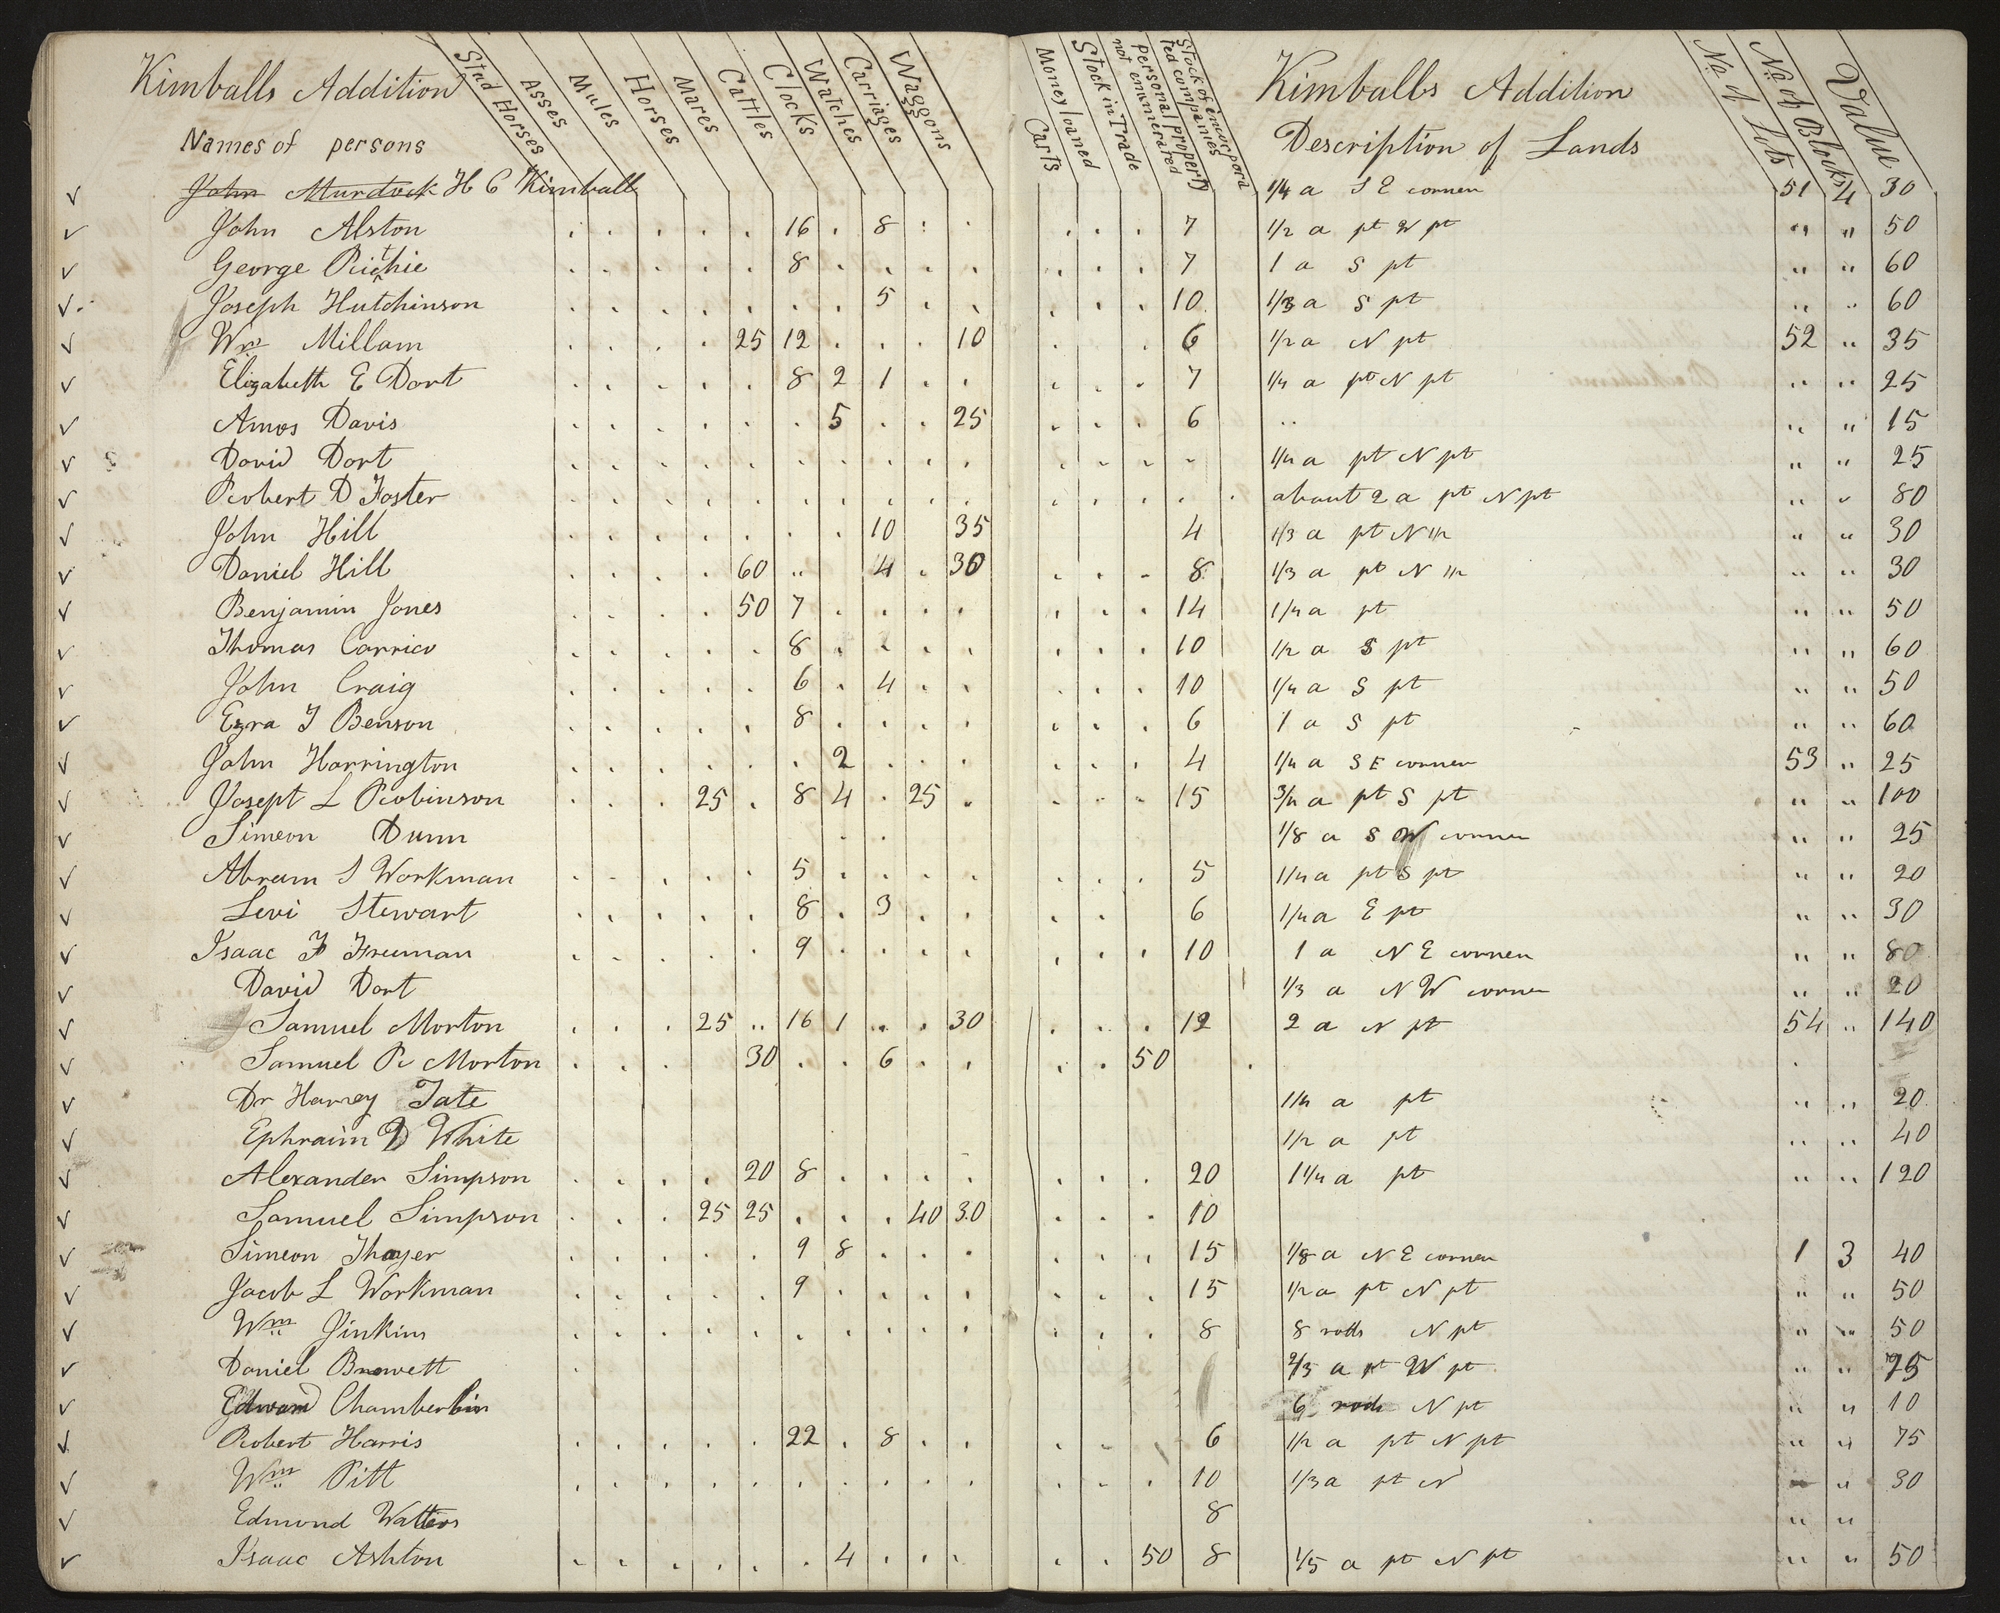 Kimballs Addition
Stud Horses Asses Mules Horses Mares Cattles Clocks Watches Carriages Waggons
Names of persons
Carts Money loaned Stock in Trade Personal property not enumerated Stock of encorporated companies
Kimballs Addition
Description of Lands
No. of Lots No. of Blocks Value
✓ John Murdock H C Kimball 1/4 a S E corner 51 4 30
✓ John Alston 16 8 7 1/2 a pt W pt " " 50
✓ George Ritchie 8 7 1 a S pt " " 60
✓ Joseph Hutchinson 5 10 1/3 a S pt " " 60
✓ Wm Millam 25 12 10 6 1/2 a N pt 52 " 35
✓ Elizabeth E Dort 8 2 1 7 1/4 a pt N pt " " 25
✓ Amos Davis 5 25 6 " " " 15
✓ David Dort 1/4 a pt N pt " " 25
✓ Robert D Foster about 2 a pt N pt " " 80
✓ John Hill 10 35 4 1/3 a pt N 1/2 " " 30
✓ Daniel Hill 60 " 4 30 8 1/3 a pt N 1/2 " " 30
✓ Benjamin Jones 50 7 14 1/4 a pt " " 50
✓ Thomas Carrico 8 10 1/2 a S pt " " 60
✓ John Craig 6 4 10 1/4 a S pt " " 50
✓ Ezra T Benson 8 6 1 a S pt " " 60
✓ John Harrington 2 4 1/4 a S E corner 53 " 25
✓ Josept L Robinson 25 8 4 25 15 3/4 a pt S pt " " 100
✓ Simeon Dunn 1/8 a S W corner " " 25
✓ Abram S Workman 5 5 1/4 a pt S pt " " 20
✓ Levi Stewart 8 3 6 1/4 a E pt " " 30
✓ Isaac F Freeman 9 10 1 a N E corner " " 80
✓ David Dort 1/3 a N W corner " " 20
✓ Samuel Morton 25 " 16 1 30 12 2 a N pt 54 " 140
✓ Samuel R Morton 30 6 50
✓ Dr Harvey Tate 1/4 a pt " " 20
✓ Ephraim D White 1/2 a pt " " 40
✓ Alexander Simpson 20 8 20 1 1/4 a pt " " 120
✓ Samuel Simpson 25 25 40 30 10
✓ Simeon Thayer 9 8 15 1/8 a N E corner 1 3 40
✓ Jacob L Workman 9 15 1/2 a pt N pt " " 50
✓ Wm Jinkins 8 8 rods N pt " " 50
✓ Daniel Browett 2/3 a pt W pt " " 75
✓ Edward Chamberlin 6 rods N pt " " 10
✓ Robert Harris 22 8 6 1/2 a pt N pt " " 75
✓ Wm Pitt 10 1/3 a pt N " " 30
✓ Edmond Watters 8 " "
✓ Isaac Ashton 4 50 8 1/5 a pt N pt " " 50